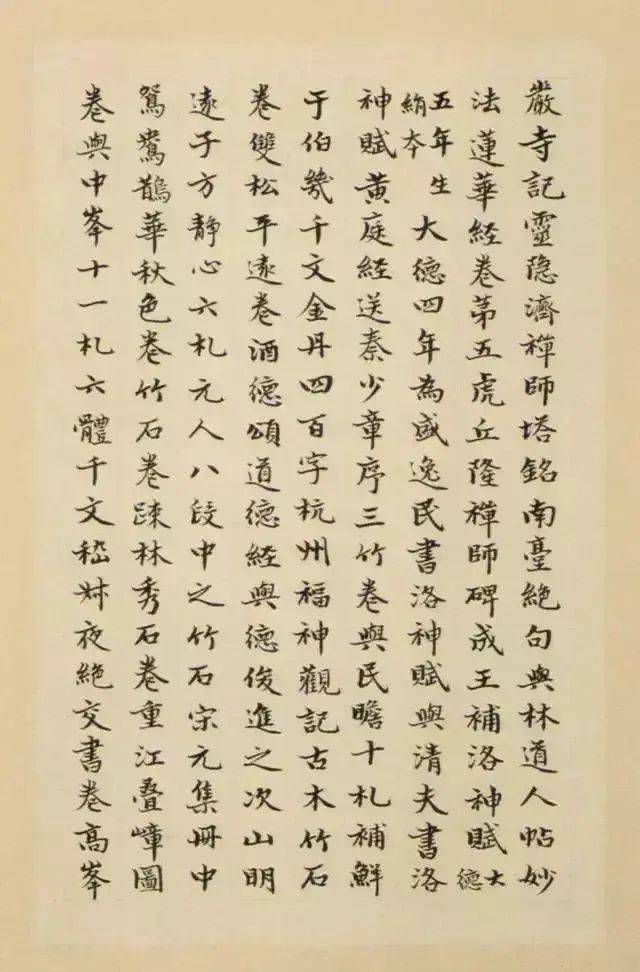 嚴寺記靈隐濟禅師塔銘南臺絶句與林道人帖妙
法蓮華經卷苐五虎丘隆禅師碑成王補洛神賦大德
五年生絹本大德四年為盛逸民書洛神賦與清夫書洛
神賦黄庭經送秦少章序三竹卷與民瞻十札補鮮
于伯幾千文金丹四百字杭州福神觀記古木竹石
卷雙松平遠卷酒德頌道德經與德俊進之次山明
遠子方静心六札元人八段中之竹石宋元集冊中
鴛鴦鵲華秋色卷竹石卷疎林秀石卷重江叠嶂圖
卷與中峯十一札六體千文嵇叔夜絶交書卷高峯